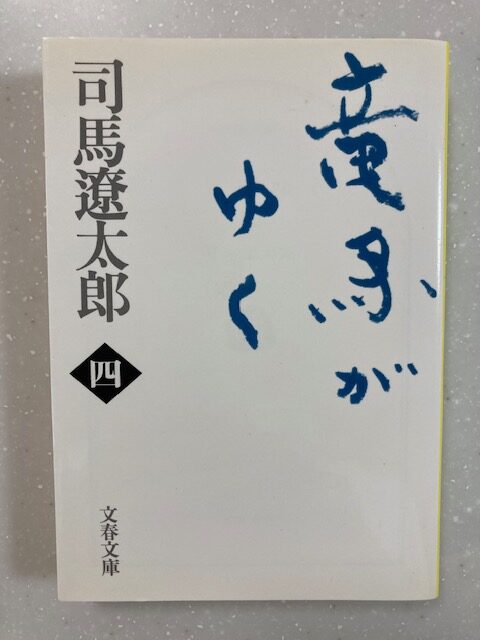 竜馬が
ゆく
司馬遼太郎
四
文春文庫